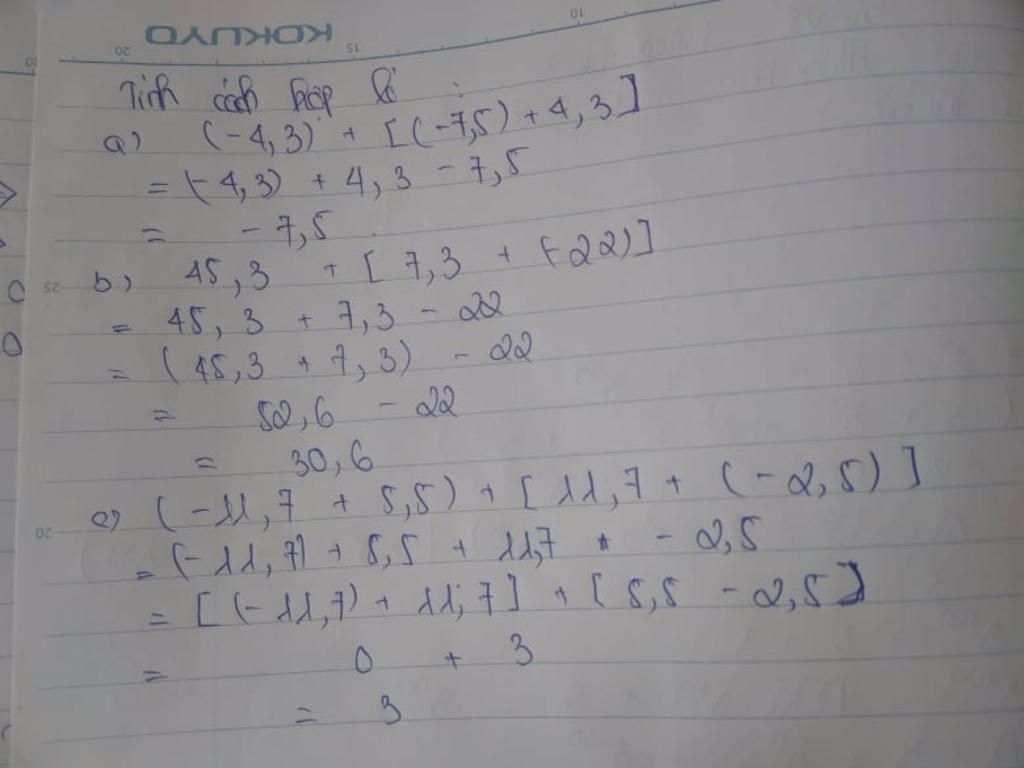 KOKUYO
20 15 10
Tính cách hợp lí :
a) (-4,3) + [(-7,5) + 4,3]
= (-4,3) + 4,3 - 7,5
= - 7,5
25
b) 45,3 + [ 7,3 + (-22)]
= 45,3 + 7,3 - 22
= (45,3 + 7,3) - 22
= 52,6 - 22
= 30,6
c) (-11,7 + 5,5) + [11,7 + (-2,5)]
20
= (-11,7) + 5,5 + 11,7 - 2,5
= [(-11,7) + 11,7] + [5,5 - 2,5]
= 0 + 3
= 3